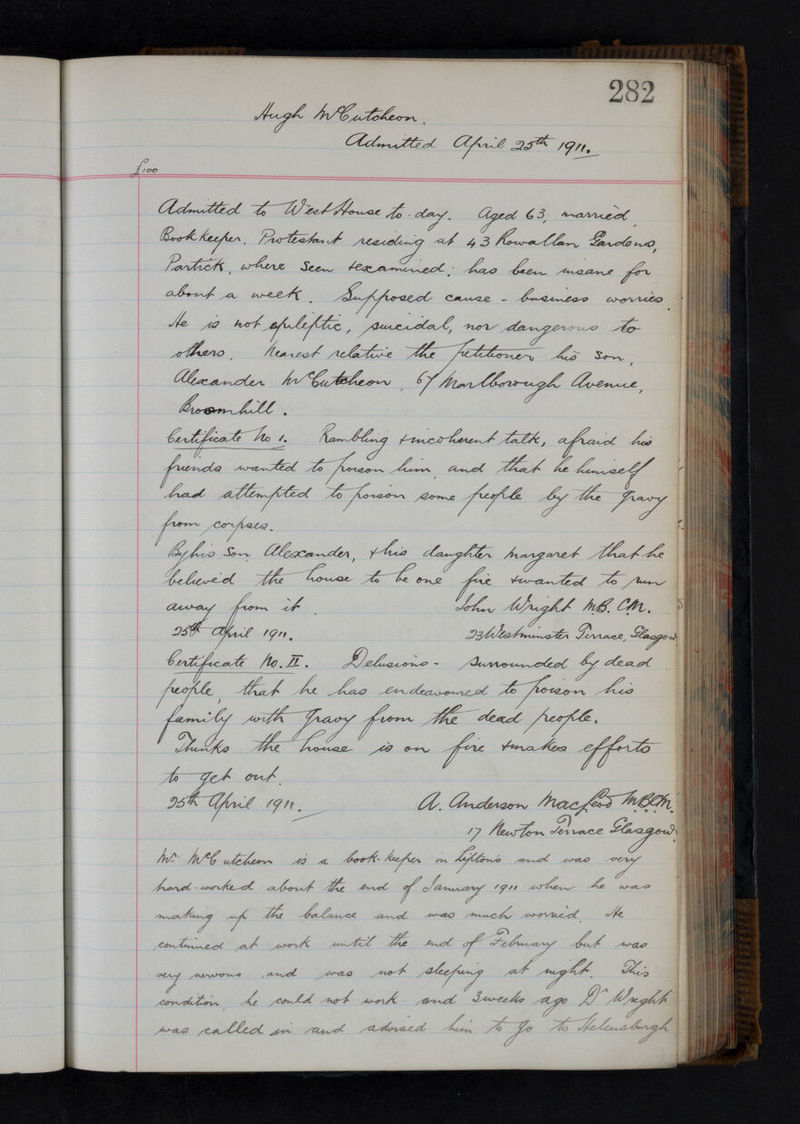 282
Hugh McCutcheon.
Admitted April 25th 1911.
£100
Admitted to West House to-day. Aged 63, married,
Book keeper, Protestant residing at 43 Rowallan Gardens,
Partick, where seen & examined: has been insane for
about a week. Supposed cause - business worries.
He is not epileptic, suicidal, nor dangerous to
others. Nearest relative the petitioner his son,
Alexander McCutcheon, 67 Marlborough Avenue,
Broomhill.
Certificate No 1. Rambling & incoherent talk, afraid his
friends wanted to poison him, and that he himself
had attempted to poison some people by the gravy
from corpses.
By his son Alexander, & his daughter Margaret that he
believed the house to be one fire & wanted to run
away from it. John Wright M.B. C.M.
25th April 1911. 23 Westminster Terrace, Glasgow.
Certificate No. II. Delusions - surrounded by dead
people, that he has endeavoured to poison his
family with gravy from the dead people.
Thinks the house is on fire & makes efforts
to get out.
25th April 1911. A. Anderson MacLeod M.B.C.M.
17 Newton Terrace Glasgow.
Mr. McCutcheon is a book-keeper in Lipton's and was very
hard-worked about the end of January 1911 when he was
making up the balance and was much worried. He
continued at work until the end of February but was
very nervous and was not sleeping at night. This
condition, he could not work and 3 weeks ago Dr Wright
was called in and advised him to go to Helensburgh